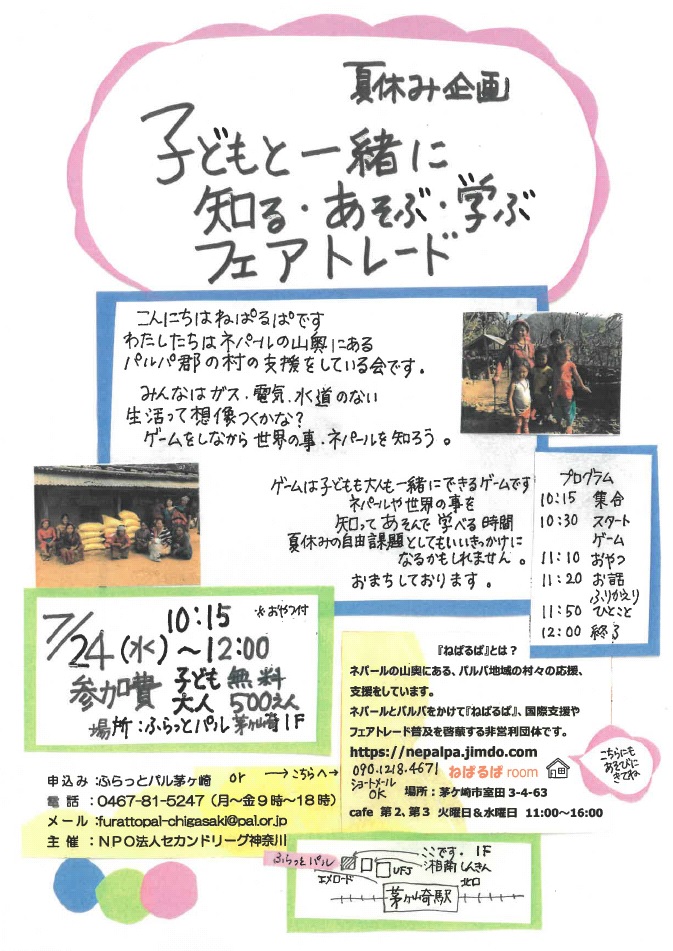 夏休み企画
子どもと一緒に
知る・あそぶ・学ぶ
フェアトレード
こんにちはねぱるぱです
わたしたちはネパールの山奥にある
パルパ郡の村の支援をしている会です。
みんなはガス、電気、水道のない
生活って想像つくかな?
ゲームをしながら世界の事、ネパールを知ろう。
ゲームは子どもも大人も一緒にできるゲームです
ネパールや世界の事を
知ってあそんで学べる時間
夏休みの自由課題としてもいいきっかけに
なるかもしれません。
おまちしております。
プログラム
10:15 集合
10:30 スタート
ゲーム
11:10 おやつ
11:20 お話
ふりかえり
11:50 ひとこと
12:00 終了
7/24(水) 10:15 ※おやつ付
~12:00
参加費 子ども 無料
大人 500えん
場所:ふらっとパル茅ヶ崎 1F
『ねぱるぱ』とは?
ネパールの山奥にある、パルパ地域の村々の応援、
支援をしています。
ネパールとパルパをかけて『ねぱるぱ』、国際支援や
フェアトレード普及を啓蒙する非営利団体です。
https://nepalpa.jimdo.com
090.1218.4671 ねぱるぱ room
ショートメール
OK
場所:茅ケ崎市室田 3-4-63
cafe 第2、第3 火曜日&水曜日 11:00~16:00
こちらにも
あそびに
きてね
申込み:ふらっとパル茅ヶ崎 or →こちらへ→
電話:0467-81-5247(月~金9時~18時)
メール:furattopal-chigasaki@pal.or.jp
主催:NPO法人セカンドリーグ神奈川
ふらっとパル
ここです。1F
UFJ
湘南しんきん
エメロード
北口
茅ヶ崎駅